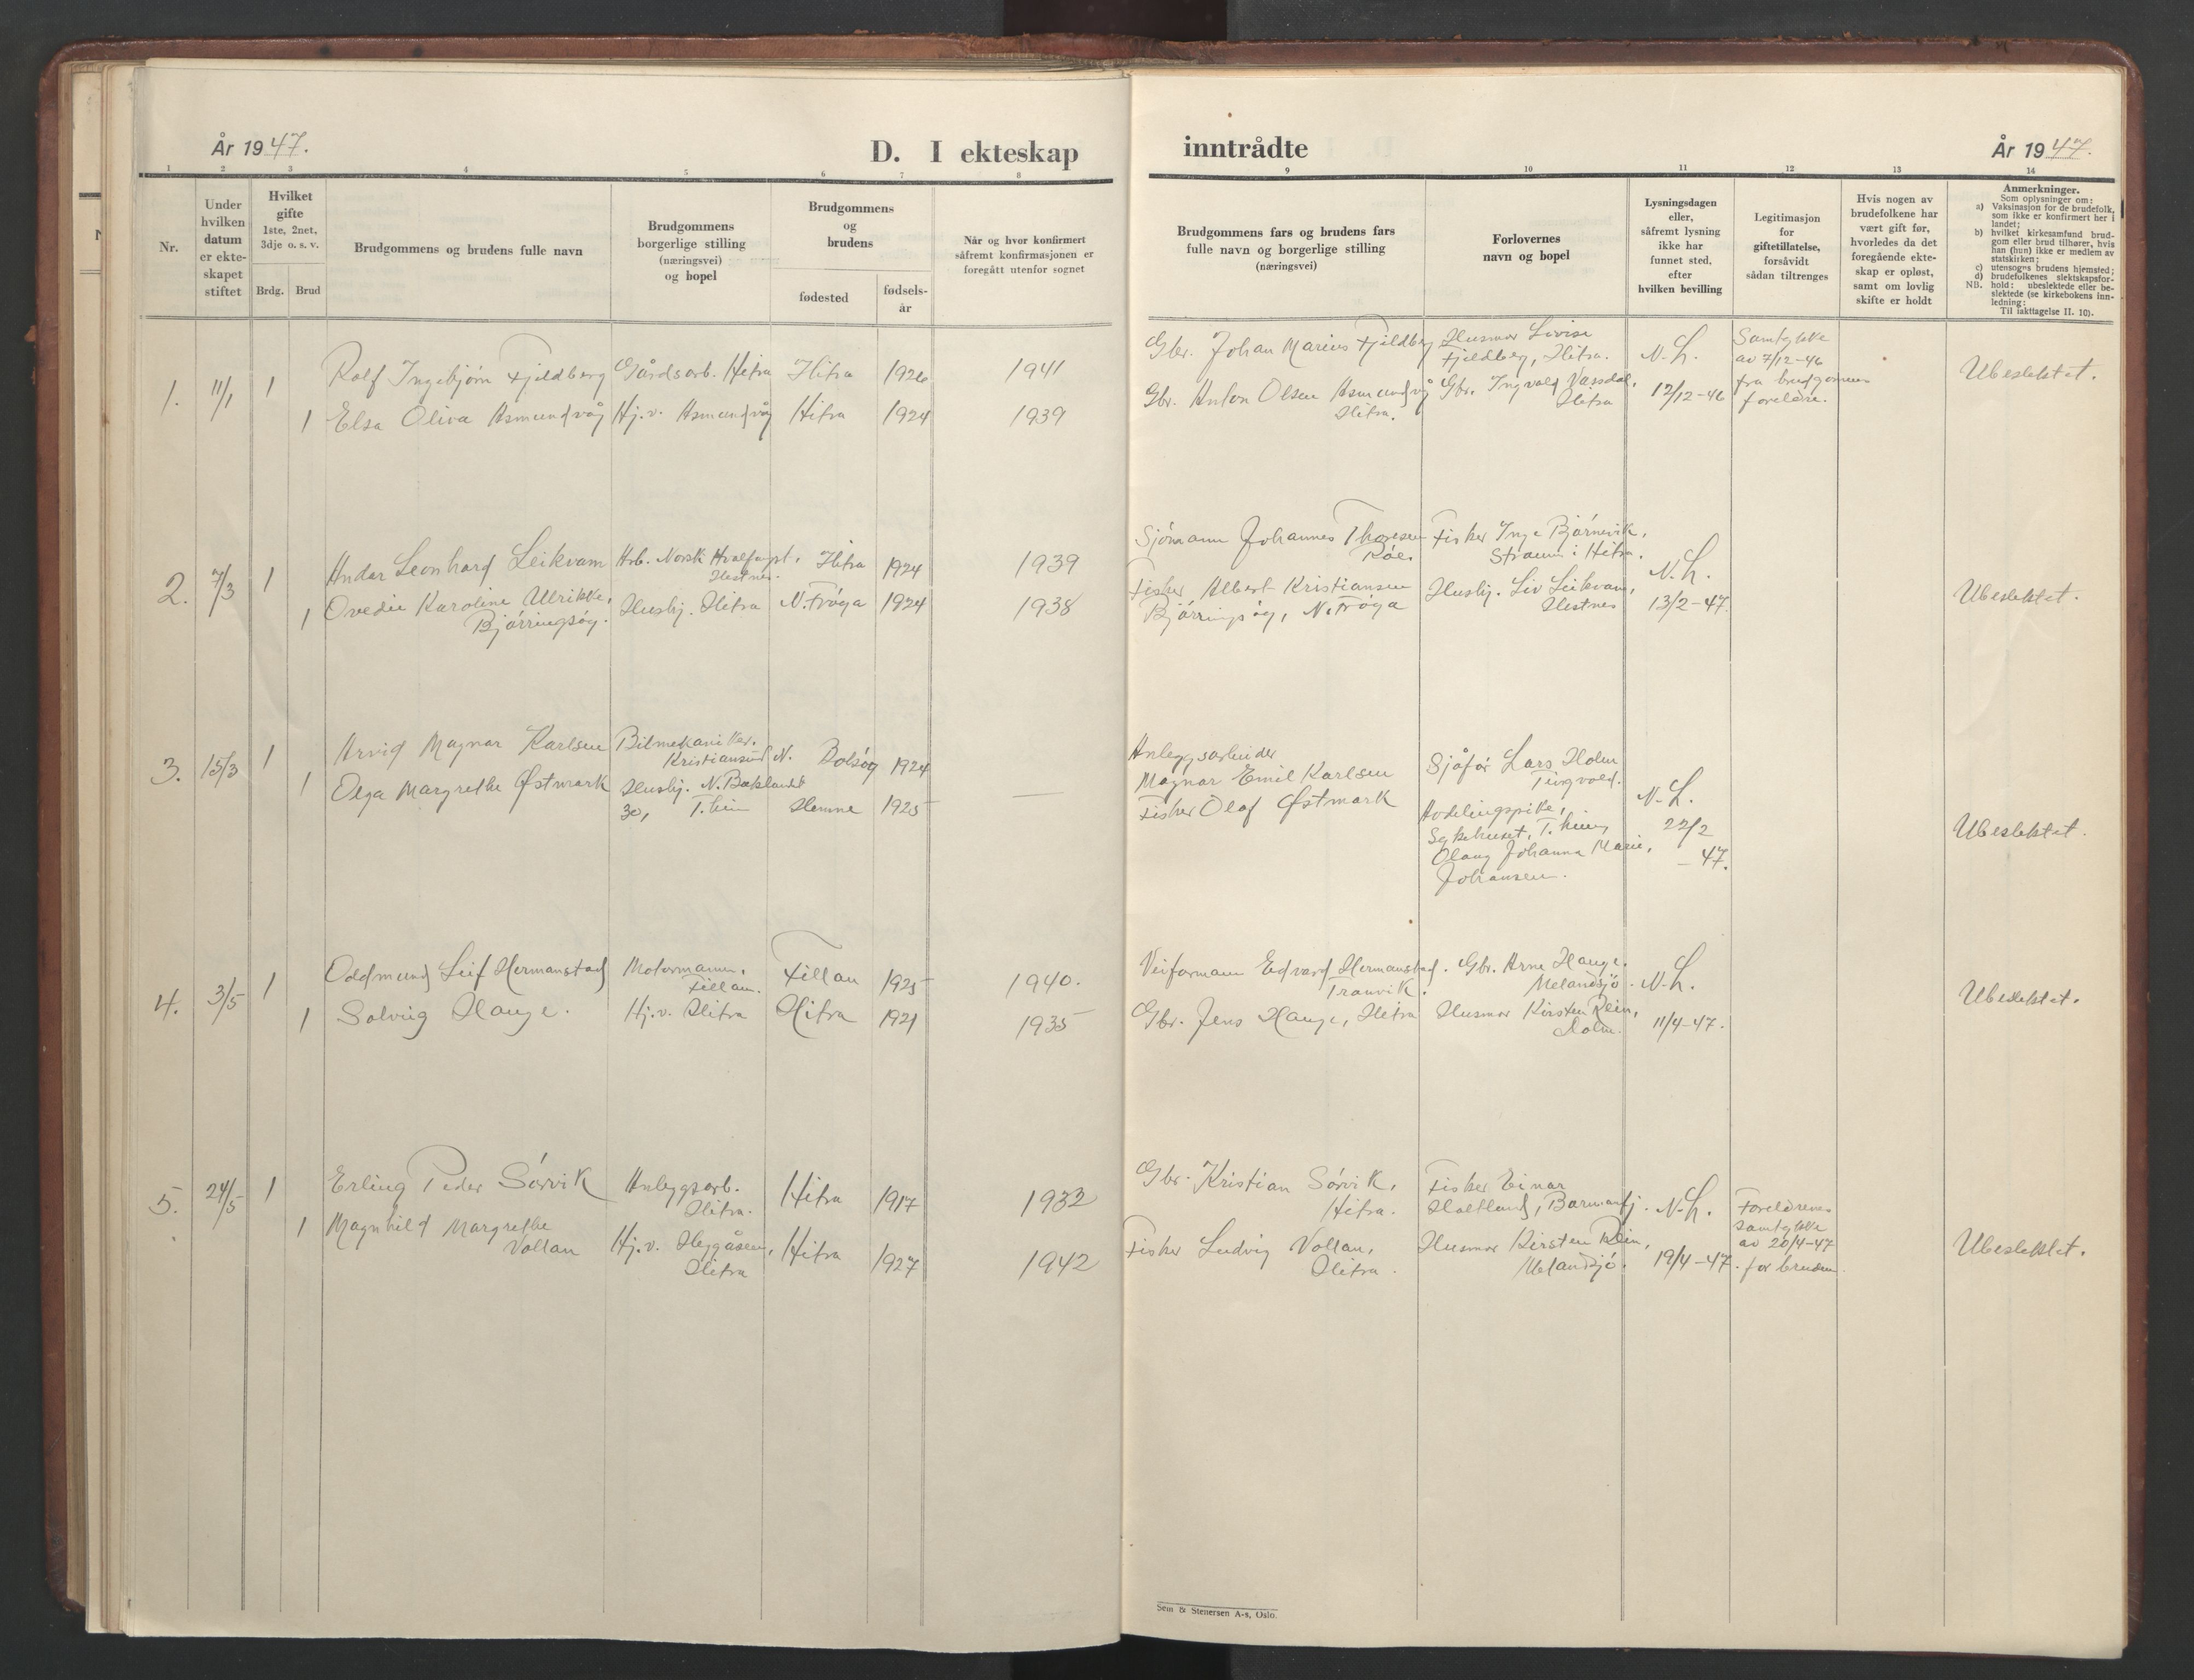 År 1947.
D. I ekteskap
inntrådte
År 1947.
1 2 3 4 5 6 7 8
9 10 11 12 13 14
Nr.
Under hvilken datum er ekteskapet stiftet
Hvilket gifte 1ste, 2net, 3dje o. s. v.
Brdg. Brud
Brudgommens og brudens fulle navn
Brudgommens borgerlige stilling (næringsvei) og bopel
Brudgommens og brudens
fødested
fødsels-år
Når og hvor konfirmert såfremt konfirmasjonen er foregått utenfor sognet
Brudgommens fars og brudens fars fulle navn og borgerlige stilling (næringsvei)
Forlovernes navn og bopel
Lysningsdagen eller, såfremt lysning ikke har funnet sted, efter hvilken bevilling
Legitimasjon for giftetillatelse, forsåvidt sådan tiltrenges
Hvis nogen av brudefolkene har vært gift før, hvorledes da det foregående ekteskap er opløst, samt om lovlig skifte er holdt
Anmerkninger.
Som oplysninger om:
a) Vaksinasjon for de brudefolk, som ikke er konfirmert her i landet;
b) hvilket kirkesamfund brudgom eller brud tilhører, hvis han (hun) ikke er medlem av statskirken;
c) utensogns brudens hjemsted;
d) brudefolkenes slektskapsforhold: ubeslektede eller beslektede (se kirkebokens innledning:
NB.
Til iakttagelse II. 10).
1. 11/1 1 Rolf Ingebjørn Fjeldberg Gårdsarb. Hitra Hitra 1926 1941
1 Elsa Oliva Asmundvåg Hj.v. Asmundvåg Hitra 1924 1939
Gbr. Johan Marius Fjeldberg
Gbr. Anton Olsen Asmundvåg
Hitra.
Husmor Lovise
Fjeldberg, Hitra.
Gbr. Ingvald Vassdal,
Hitra
N.L.
12/12-46
Samtykke
av 7/12-46
fra brudgommens
foreldre.
Ubeslektet.
2. 7/3 1 Andar Leonhard Leikvam Arb. Norsk Hvalfangst, Hestnes. Hitra 1924 1939
1 Ovedie Karoline Ulrikke,
Bjørringsøy. Husbj. Hitra N. Frøya 1924 1938
Sjömann Johannes Thoresen
Fisker Albert Kristiansen
Bjørringsøy, N. Frøya
Fisker Inge Bjørnevik,
Straum i Hitra.
Husbj. Liv Leikvam,
Hestnes
N.L.
13/2-47.
Ubeslektet.
3. 15/3 1 Arvid Magnar Karlsen Bilmekaniker.
Kristiansund N. Bolsøy 1924
1 Olga Margrethe Østmark Husbj. N. Baklandet
30, T.heim Hemne 1925 —
Anleggsarbeider
Magnar Emil Karlsen
Fisker Olaf Østmark
Sjåför Lars Holm
Tingvold.
Avdelingspike,
Sykehuset, T.heim,
Olaug Johanna Marie,
Johansen.
N.L.
22/2
-47.
Ubeslektet.
4. 3/5 1 Oddmund Leif Hermanstad Motormann.
Fillan. Fillan 1925 1940.
1 Solvig Hauge. Hj.v. Hitra Hitra 1921 1935
Veiformann Edvard Hermanstad.
Tranvik.
Gbr. Jens Hauge, Hitra
Gbr. Arne Hauge.
Melandsjö.
Husmor Kirsten Rein,
Holm.
N.L.
11/4-47.
Ubeslektet.
5. 24/5 1 Erling Peder Sørvik Anleggsarb.
Hitra. Hitra 1917 1932
1 Magnhild Margrethe
Vollan Hj.v. Heggåsen,
Hitra Hitra 1927 1942
Gbr. Kristian Sørvik,
Hitra.
Fisker Ludvig Vollan,
Hitra.
Fisker Einar
Holtland, Barmanfj.
Husmor Kirsten Rein,
Melandsjö.
N.L.
19/4-47.
Foreldrenes
samtykke
av 20/4-47
for bruden.
Ubeslektet.
Sem & Stenersen A-s, Oslo.